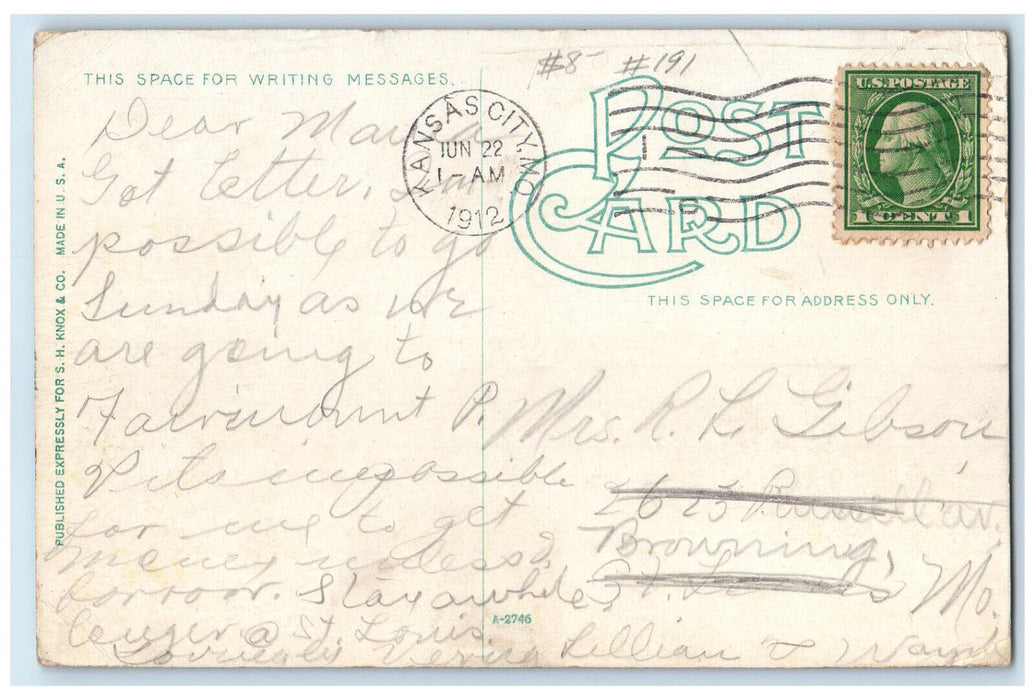 #8 #191
THIS SPACE FOR WRITING MESSAGES.
POST
CARD
KANSAS CITY, MO.
JUN 22
1-AM
1912
U.S. POSTAGE
1 CENT 1
THIS SPACE FOR ADDRESS ONLY.
PUBLISHED EXPRESSLY FOR S. H. KNOX & CO. MADE IN U. S. A.
Dear Mama
Got letter,
possible to go
Sunday as we
are going to
Fairmount P.
impossible
for me to get
money unless I
borrow. Stay awhile
longer @ St. Louis.
Lovingly Verna Lillian & Wayne
Mrs. R. L. Gibson,
2623 Russell av.
Browning,
St. Louis Mo.
A-2746